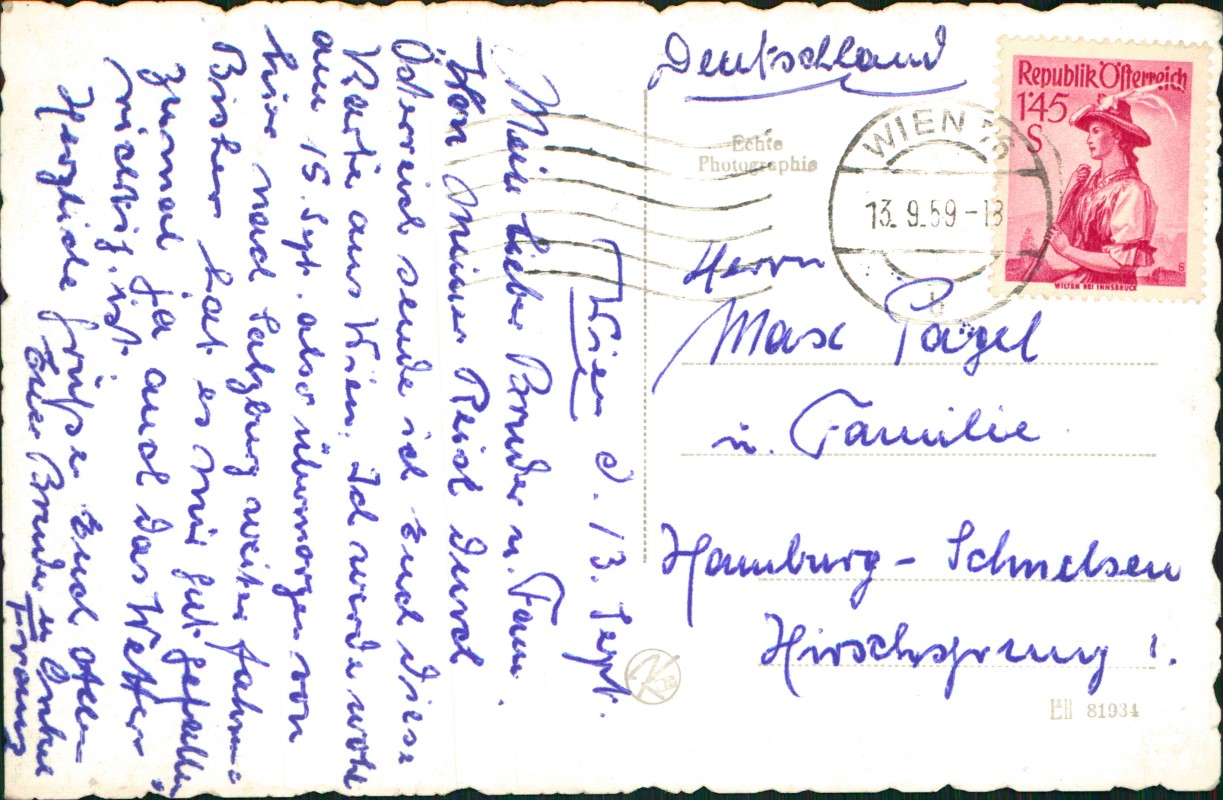 Wien d. 13. Sept.
Mein lieber Bruder u. Fam.
Von meiner Reise durch
Österreich sende ich Euch diese
Karte aus Wien. Ich werde wohl
am 15. Sept. also übermorgen von
hier nach Salzburg weiter fahren
Bisher hat es mir gut gefallen
zumal ja auch das Wetter
richtig ist.
Herzliche Grüße Euch allen
Euer Bruder u. Onkel
Franz
Deutschland
Echte
Photographie
WIEN
13. 9.59-18
b
Republik Österreich
1'45
S
WILTEN BEI INNSBRUCK
S
Herrn
Max Pagel
u. Familie
Hamburg - Schnelsen
Hirschsprung 1.
K
81934